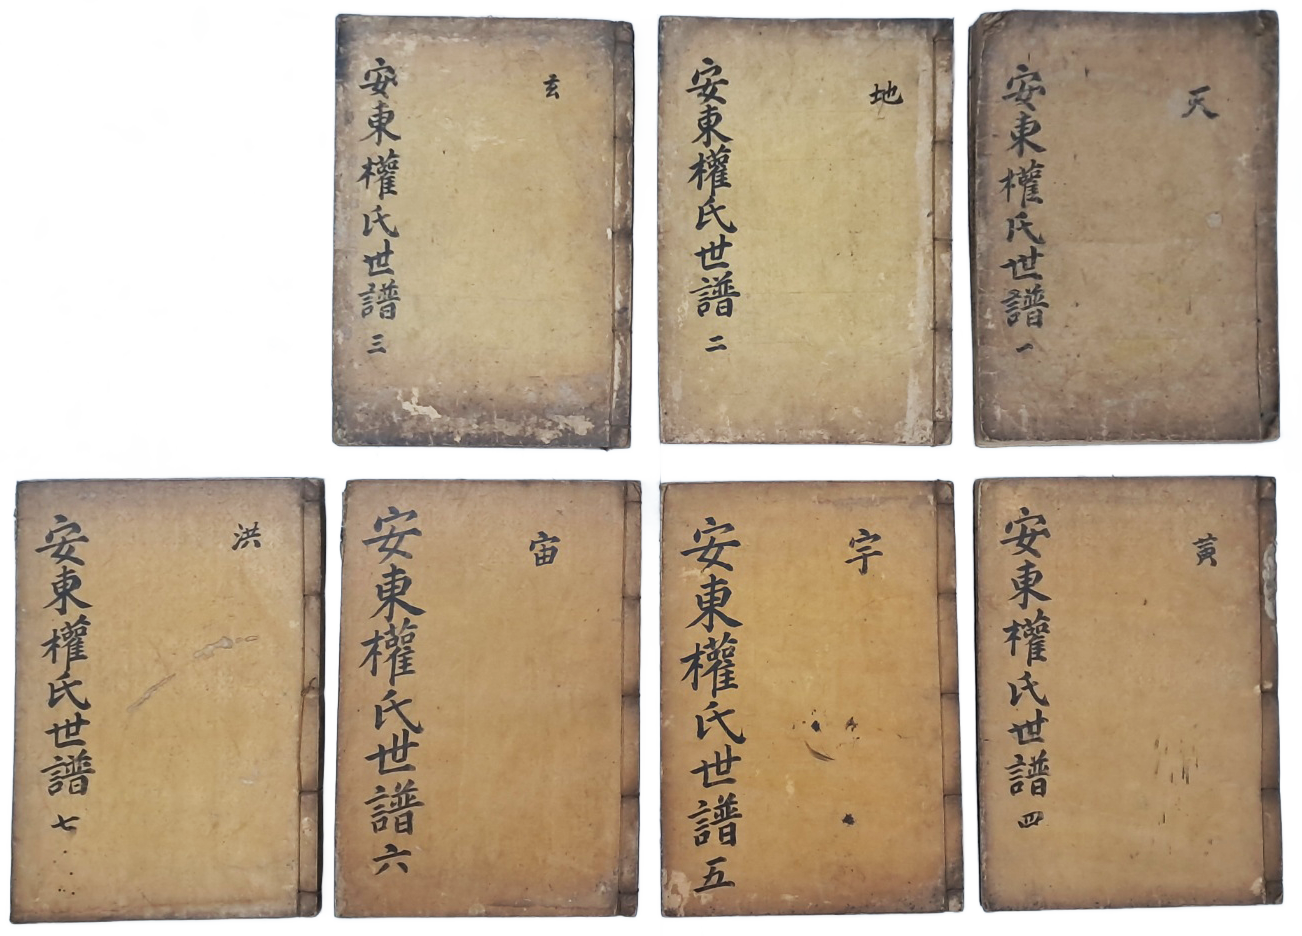 天
安東權氏世譜 一
地
安東權氏世譜 二
玄
安東權氏世譜 三
黃
安東權氏世譜 四
宇
安東權氏世譜 五
宙
安東權氏世譜 六
洪
安東權氏世譜 七